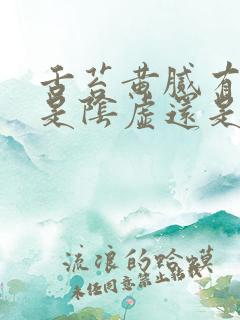 舌苔黄腻有
是阴虚还是
流浪的蛤蟆
未经同意禁止转载